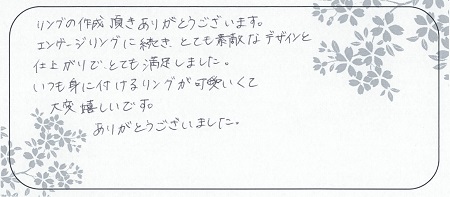 リングの作成頂きありがとうございます。
エンゲージリングに続き、とても素敵なデザインと
仕上がりで、とても満足しました。
いつも身に付けるリングが可愛いくて
大変嬉しいです。
ありがとうございました。